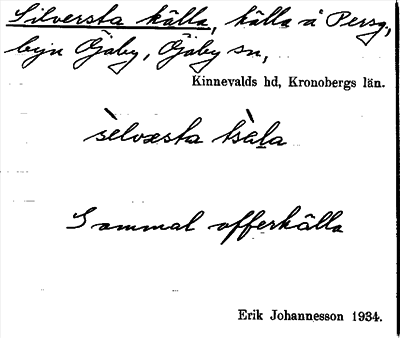 Silversta källa, källa å Persg,
byn Öjaby, Öjaby sn,
Kinnevalds hd, Kronobergs län.
sèlvæsta tsàla
Gammal offerkälla
Erik Johannesson 1934.